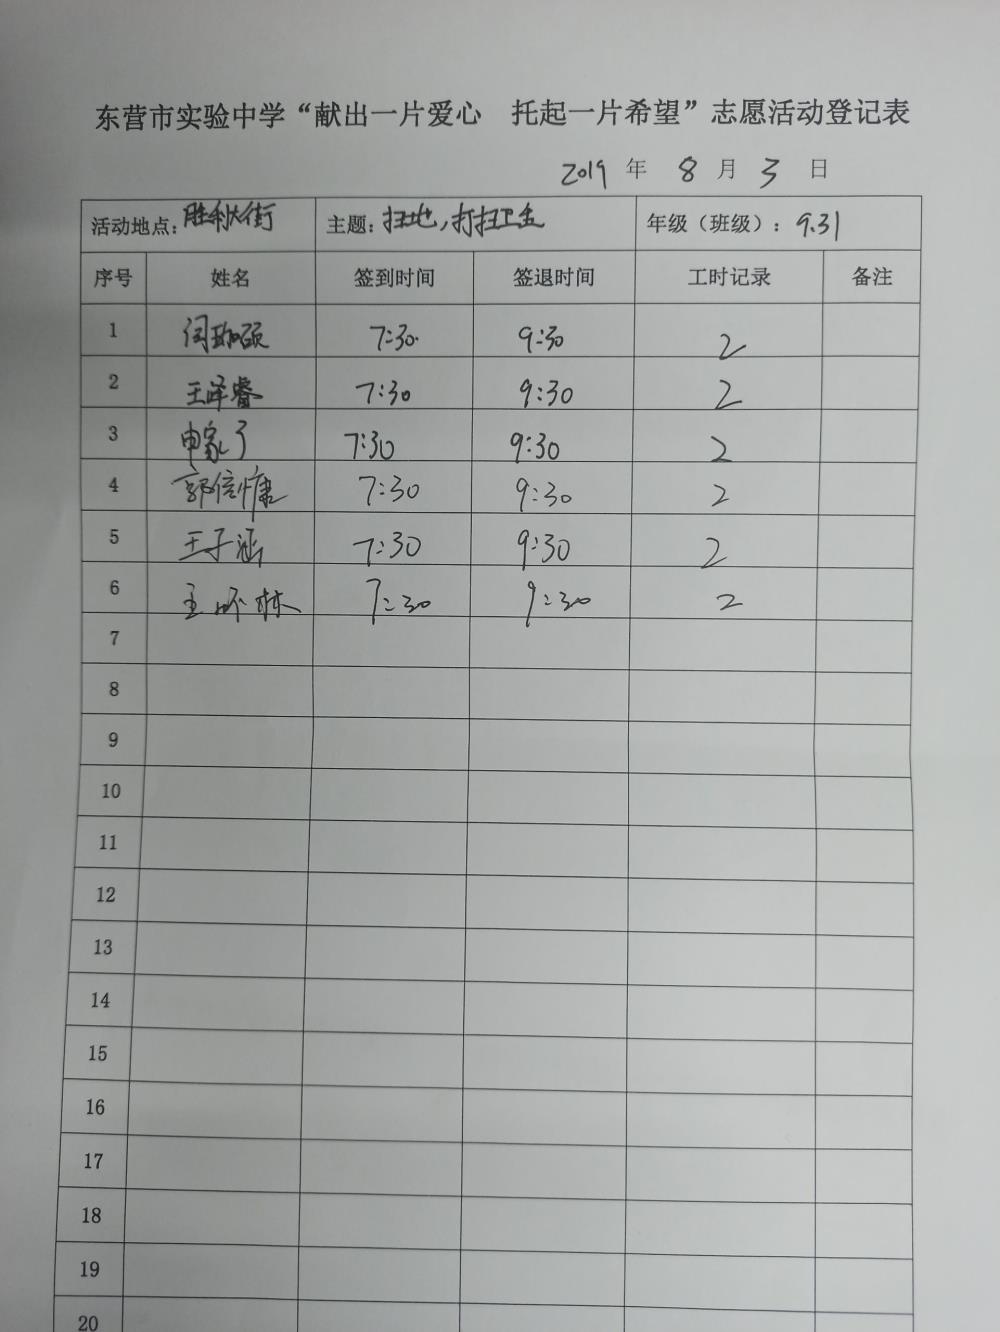 东营市实验中学“献出一片爱心 托起一片希望”志愿活动登记表
2019 年 8 月 3 日
活动地点：胜利大街 主题：扫地，打扫卫生 年级（班级）：9.31
序号 姓名 签到时间 签退时间 工时记录 备注
1 闫珈颐 7:30 9:30 2
2 王泽睿 7:30 9:30 2
3 申家 7:30 9:30 2
4 郭信慷 7:30 9:30 2
5 王子涵 7:30 9:30 2
6 王 林 7:30 9:30 2
7
8
9
10
11
12
13
14
15
16
17
18
19
20